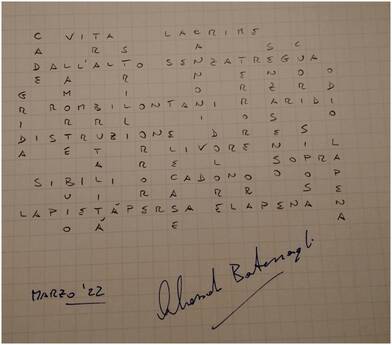 C VITA LACRIME
A R S A S C
DALL'ALTO SENZATREGUA
E M R N E N O O
G M I O Z R D
ROMBILONTANI ARIDI
I R L I O S O
DISTRUZIONE D R E S
A E T R LIVORE N I L
A R E L SOPRA
SIBILI O CADONO O P
U I R A R R S E
LAPIETÀPERSA ELAPENA N
O À E A
MARZO '22